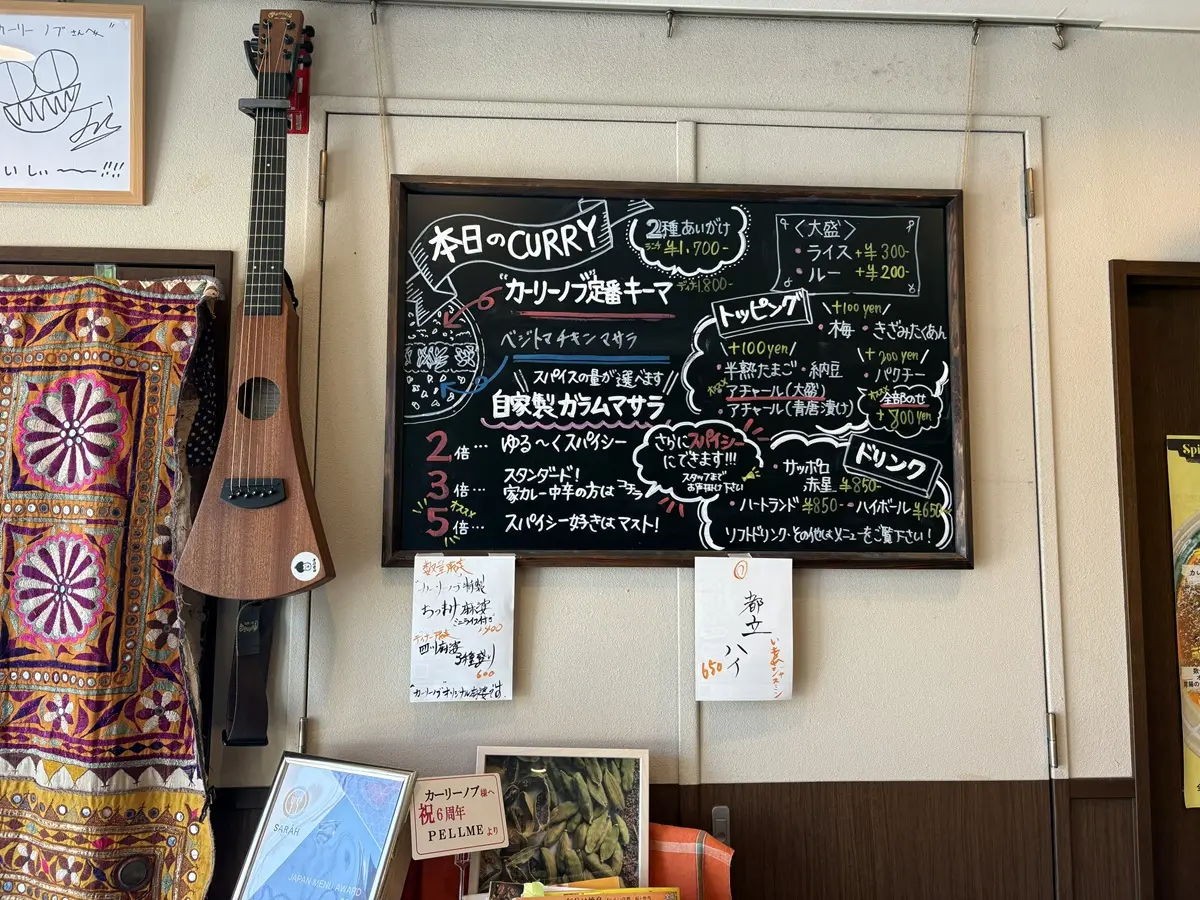 カーリー ノブ さんへ
いしい〜!!!!
本日のCURRY
2種あいがけ
ランチ ¥1,700-
ディナー 1800-
〈大盛〉
・ライス +¥300-
・ルー +¥200-
"カーリーノブ"定番キーマ
ベジトマチキンマサラ
スパイスの量が選べます
自家製ガラムマサラ
2倍… ゆる〜くスパイシー
3倍… スタンダード!
家カレー中辛の方はコチラ
オススメ
5倍… スパイシー好きはマスト!
さらにスパイシー
にできます!!!
スタッフまで
お声掛け下さい
トッピング
+100yen
・梅 ・きざみたくあん
+100yen
・半熟たまご ・納豆
・アチャール(大盛)
・アチャール(青唐漬け)
+200yen
・パクチー
全部のせ
+800yen
ドリンク
・サッポロ
赤星 ¥850-
・ハートランド ¥850- ・ハイボール ¥650-
ソフトドリンク・その他はメニューをご覧下さい!
カーリーノブ特製
麻婆
ミニライス付き
四川麻婆
3種盛り
600
"カーリーノブオリジナル麻婆"です
都立
ハイ
650
カーリーノブ様へ
祝6周年
PELLMEより
SARAH
JAPAN MENU AWARD